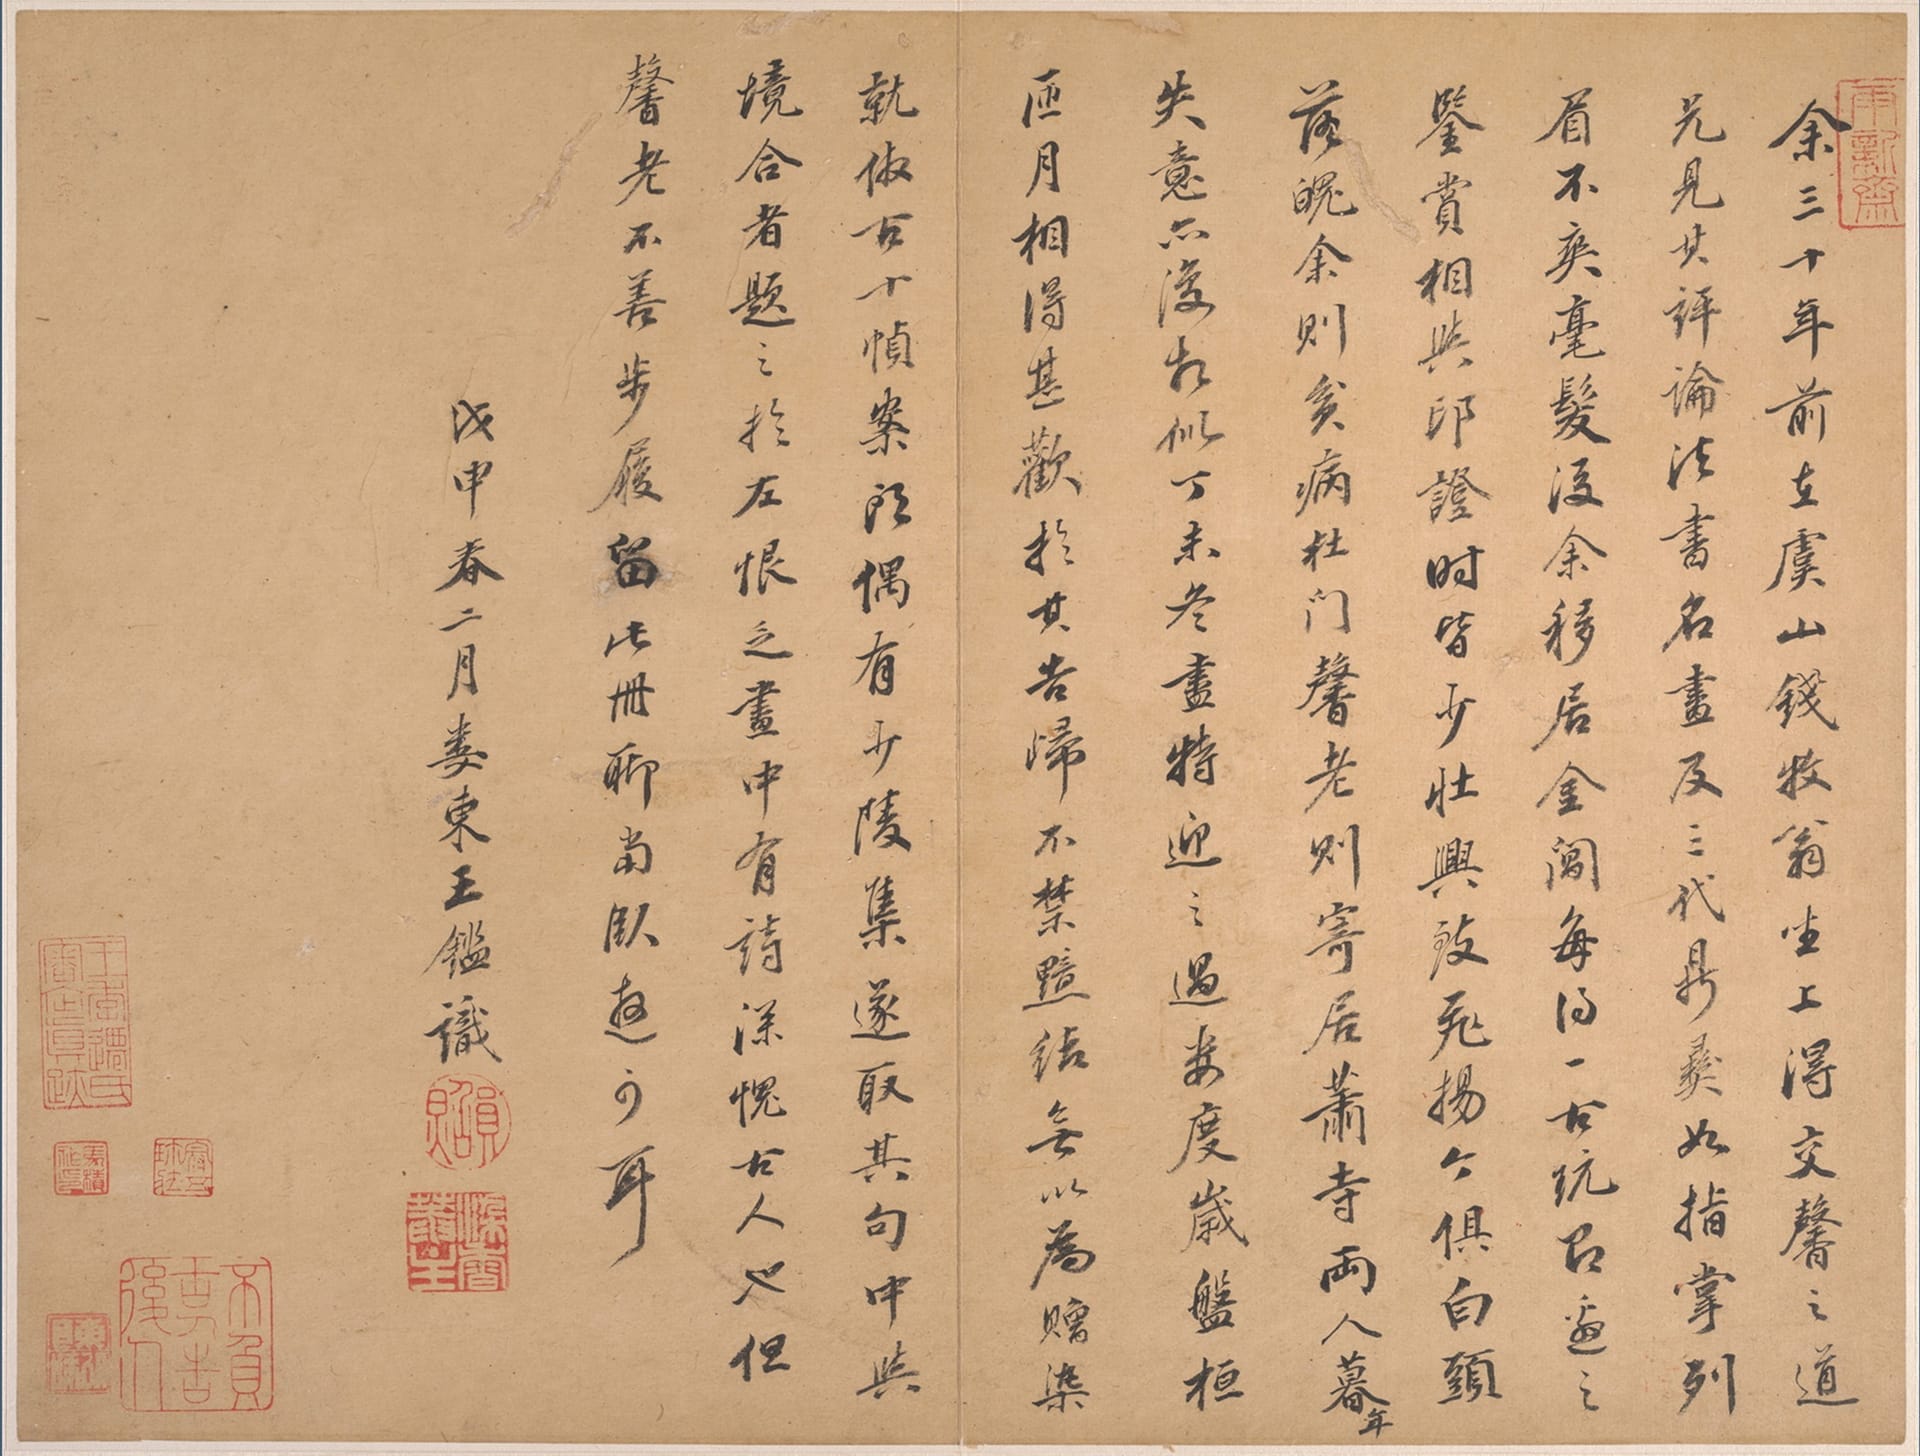 余三十年前在虞山錢牧翁坐上得交馨之道
兄見其評論法書名畫及三代鼎彝如指掌列
眉不爽毫髮後余移居金閶每得一古玩召過之
鑒賞相與印證時皆少壯興致飛揚今俱白頭
落魄余則貧病杜門馨老則寄居蕭寺兩人暮年
失意亦復相似丁未冬盡特迎之過婁度歲盤桓
匝月相得甚歡於其告歸不禁黯結無以為贈染
就倣古十幀案頭偶有少陵集遂取其句中與
境合者題之於左恨乏畫中有詩深愧古人也但
馨老不善步履留此冊聊當臥遊可耳
戊申春二月婁東王鑑識